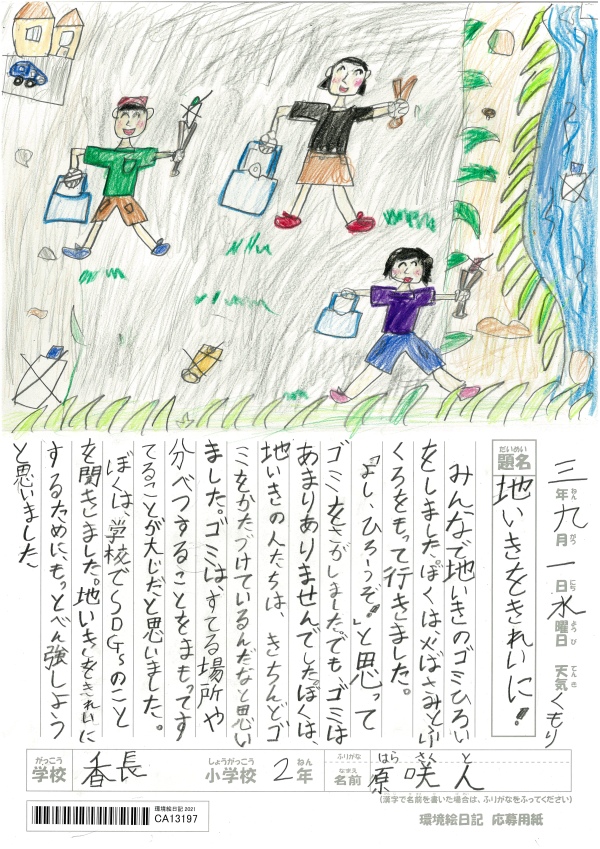 三年九月一日水曜日 天気くもり
ねん がつ にち ようび てんき
だいめい
題名
地いきをきれいに!
みんなで地いきのゴミひろい
をしました。ぼくは火ばさみとふ
くろをもって行きました。
「よし、ひろーうぞ!!」と思って
ゴミをさがしました。でもゴミは
あまりありませんでした。ぼくは、
地いきの人たちは、きちんとゴ
ミをかたづけているんだなと思い
ました。ゴミは、すてる場所や
分べつすることをまもってす
てることが大じだと思いました。
ぼくは、学校でSDGsのこと
を聞きました。地いきをきれいに
するために、もっとべん強しよう
と思いました。
がっこう
学校 香長
しょうがっこう ねん
小学校 2年
ふりがな はら さん と
なまえ
名前 原 咲人
(漢字で名前を書いた場合は、ふりがなをふってください)
環境絵日記 2021
CA13197
環境絵日記 応募用紙